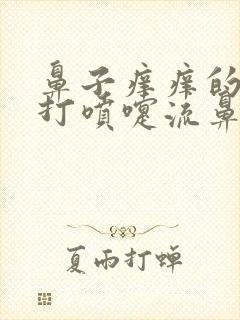 鼻子痒痒的
打喷嚏流鼻
夏雨打蝉